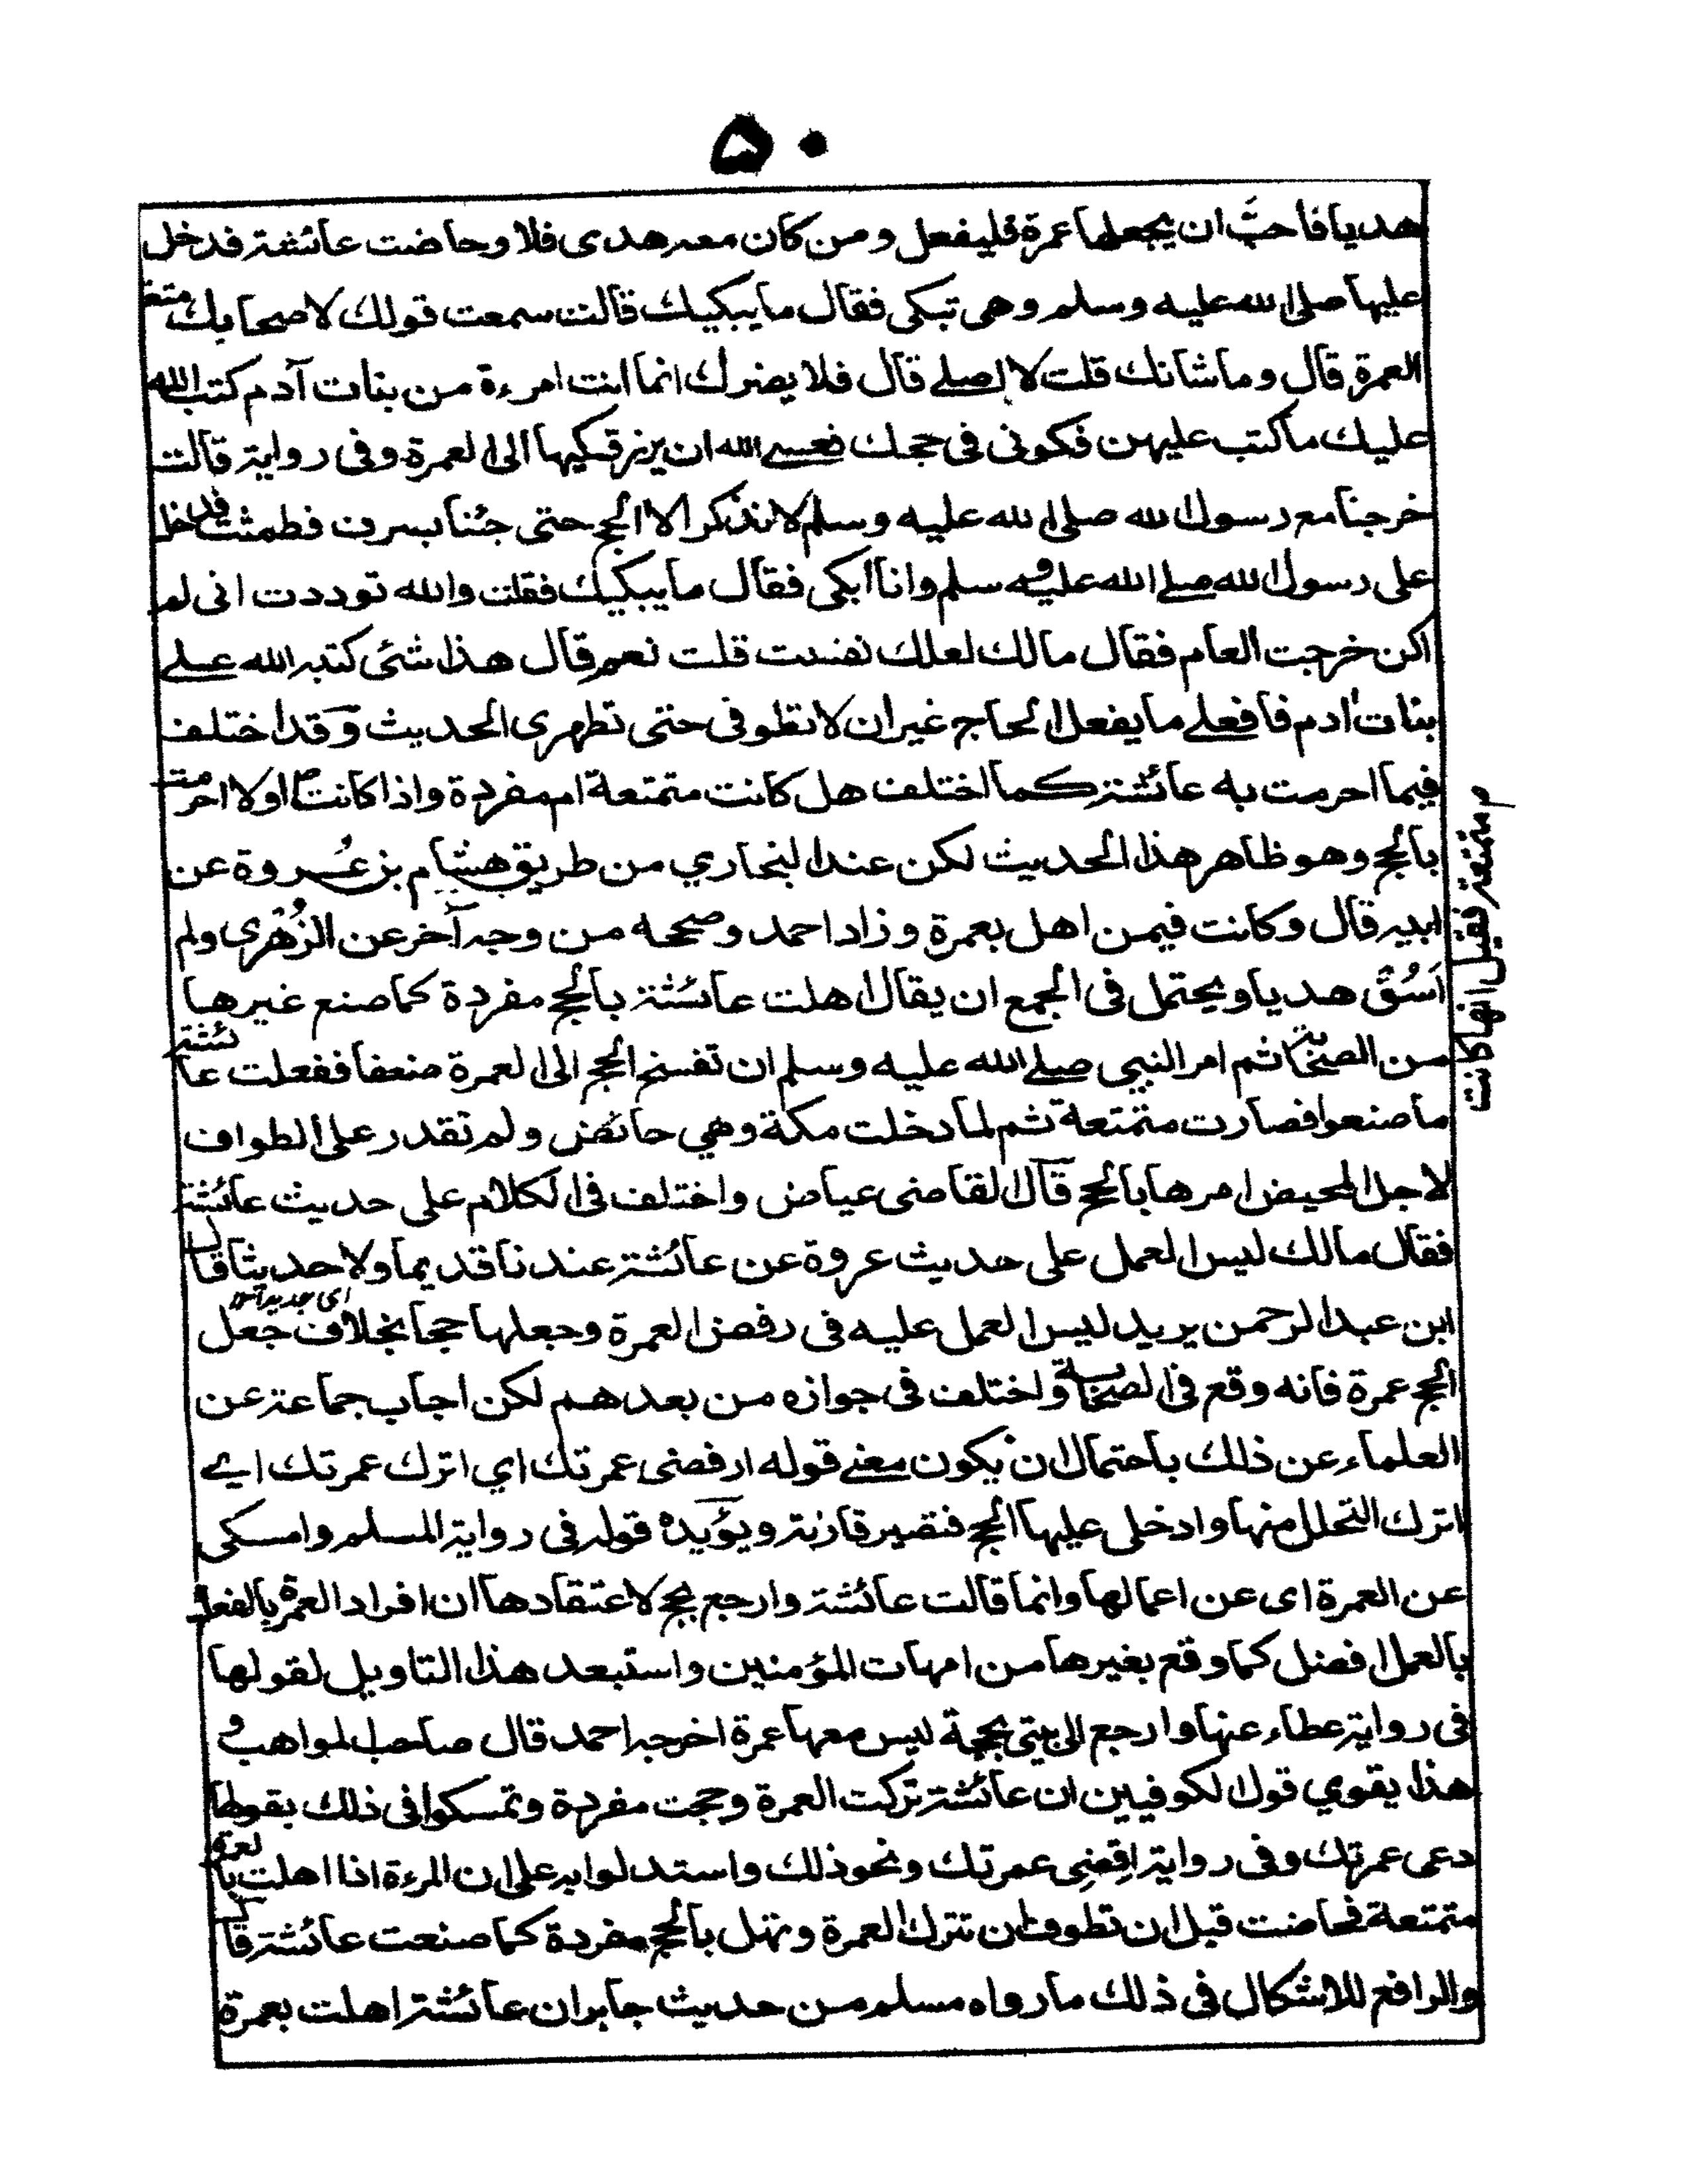 ۵۰
هديا فاحبَّ ان يجعلها عمرة فليفعل ومن كان معه هدى فلا وحاضت عائشة فدخل
عليها صلى الله عليه وسلم وهى تبكى فقال ما يبكيك قالت سمعت قولك لاصحابك متعة
العمرة قال وما شانك قلت لا اصلے قال فلا يضرك انما انت امرءة من بنات آدم كتب الله
عليك ما كتب عليهن فكونى فى حجك فعسے الله ان يرزقكيها الى العمرة وفى رواية قالت
خرجنا مع رسول الله صلى الله عليه وسلم لا نذكر الا الحج حتى جئنا بسرف فطمثت فدخل
على رسول الله صلے الله عليه وسلم وانا ابكى فقال ما يبكيك فقلت والله توددت انى لم
اكن خرجت العام فقال مالك لعلك نفست قلت نعم قال هذا شئى كتبه الله علے
بنات ادم فافعلے ما يفعل الحاج غير ان لا تطوفى حتى تطهرى الحديث وقد اختلف
فيما احرمت به عائشة كما اختلف هل كانت متمتعة ام مفردة واذا كانت اولا احرمت
متمتعة فقيل انها كانت
بالحج وهو ظاهر هذا الحديث لكن عند البخاري من طريق هشام بن عُروة عن
ابيه قال وكانت فيمن اهل بعمرة وزاد احمد وصححه من وجه آخر عن الزُهْرى ولم
اَسُقْ هديا ويحتمل فى الجمع ان يقال اهلت عائشة بالحج مفردة كما صنع غيرها
من الصحابة ثم امر النبي صلے الله عليه وسلم ان تفسخ الحج الى العمرة ففعلت عائشة
ما صنعوا فصارت متمتعة ثم لما دخلت مكة وهي حائض ولم تقدر على الطواف
لاجل المحيض امرها بالحج قال القاضى عياض واختلف فى الكلام على حديث عائشة
فقال مالك ليس العمل على حديث عروة عن عائشة عندنا قديما ولا حديثا قال
ابن عبد الرحمن يريد ليس العمل عليه فى رفض العمرة وجعلها حجا بخلاف جعل
الحج عمرة فانه وقع فى الصحابة واختلف فى جوازه من بعدهم لكن اجاب جماعة عن
العلماء عن ذلك باحتمال ان يكون معنے قوله ارفضى عمرتك اي اترك عمرتك اے
اترك التحلل منها وادخلى عليها الحج فتصير قارنة ويؤيده قوله فى رواية المسلم وامسكى
عن العمرة اى عن اعمالها وانما قالت عائشة وارجع بحج لاعتقادها ان افراد العمرة بالفعل
بالعمل افضل كما وقع بغيرها من امهات المؤمنين واستبعد هذا التاويل لقولها
فى رواية عطاء عنها وارجع الى بيتى بحجة ليس معها عمرة اخرجه احمد قال صاحب المواهب و
هذا يقوي قول الكوفيين ان عائشة تركت العمرة وحجت مفردة وتمسكوا فى ذلك بقولها
دعى عمرتك وفى رواية اقضِى عمرتك ونحو ذلك واستدلوا به على ان المرءة اذا اهلت بالعمرة
متمتعة فحاضت قبل ان تطوف ان تترك العمرة وتهل بالحج مفردة كما صنعت عائشة قال
والرافع للاشكال فى ذلك ما رواه مسلم من حديث جابر ان عائشة اهلت بعمرة